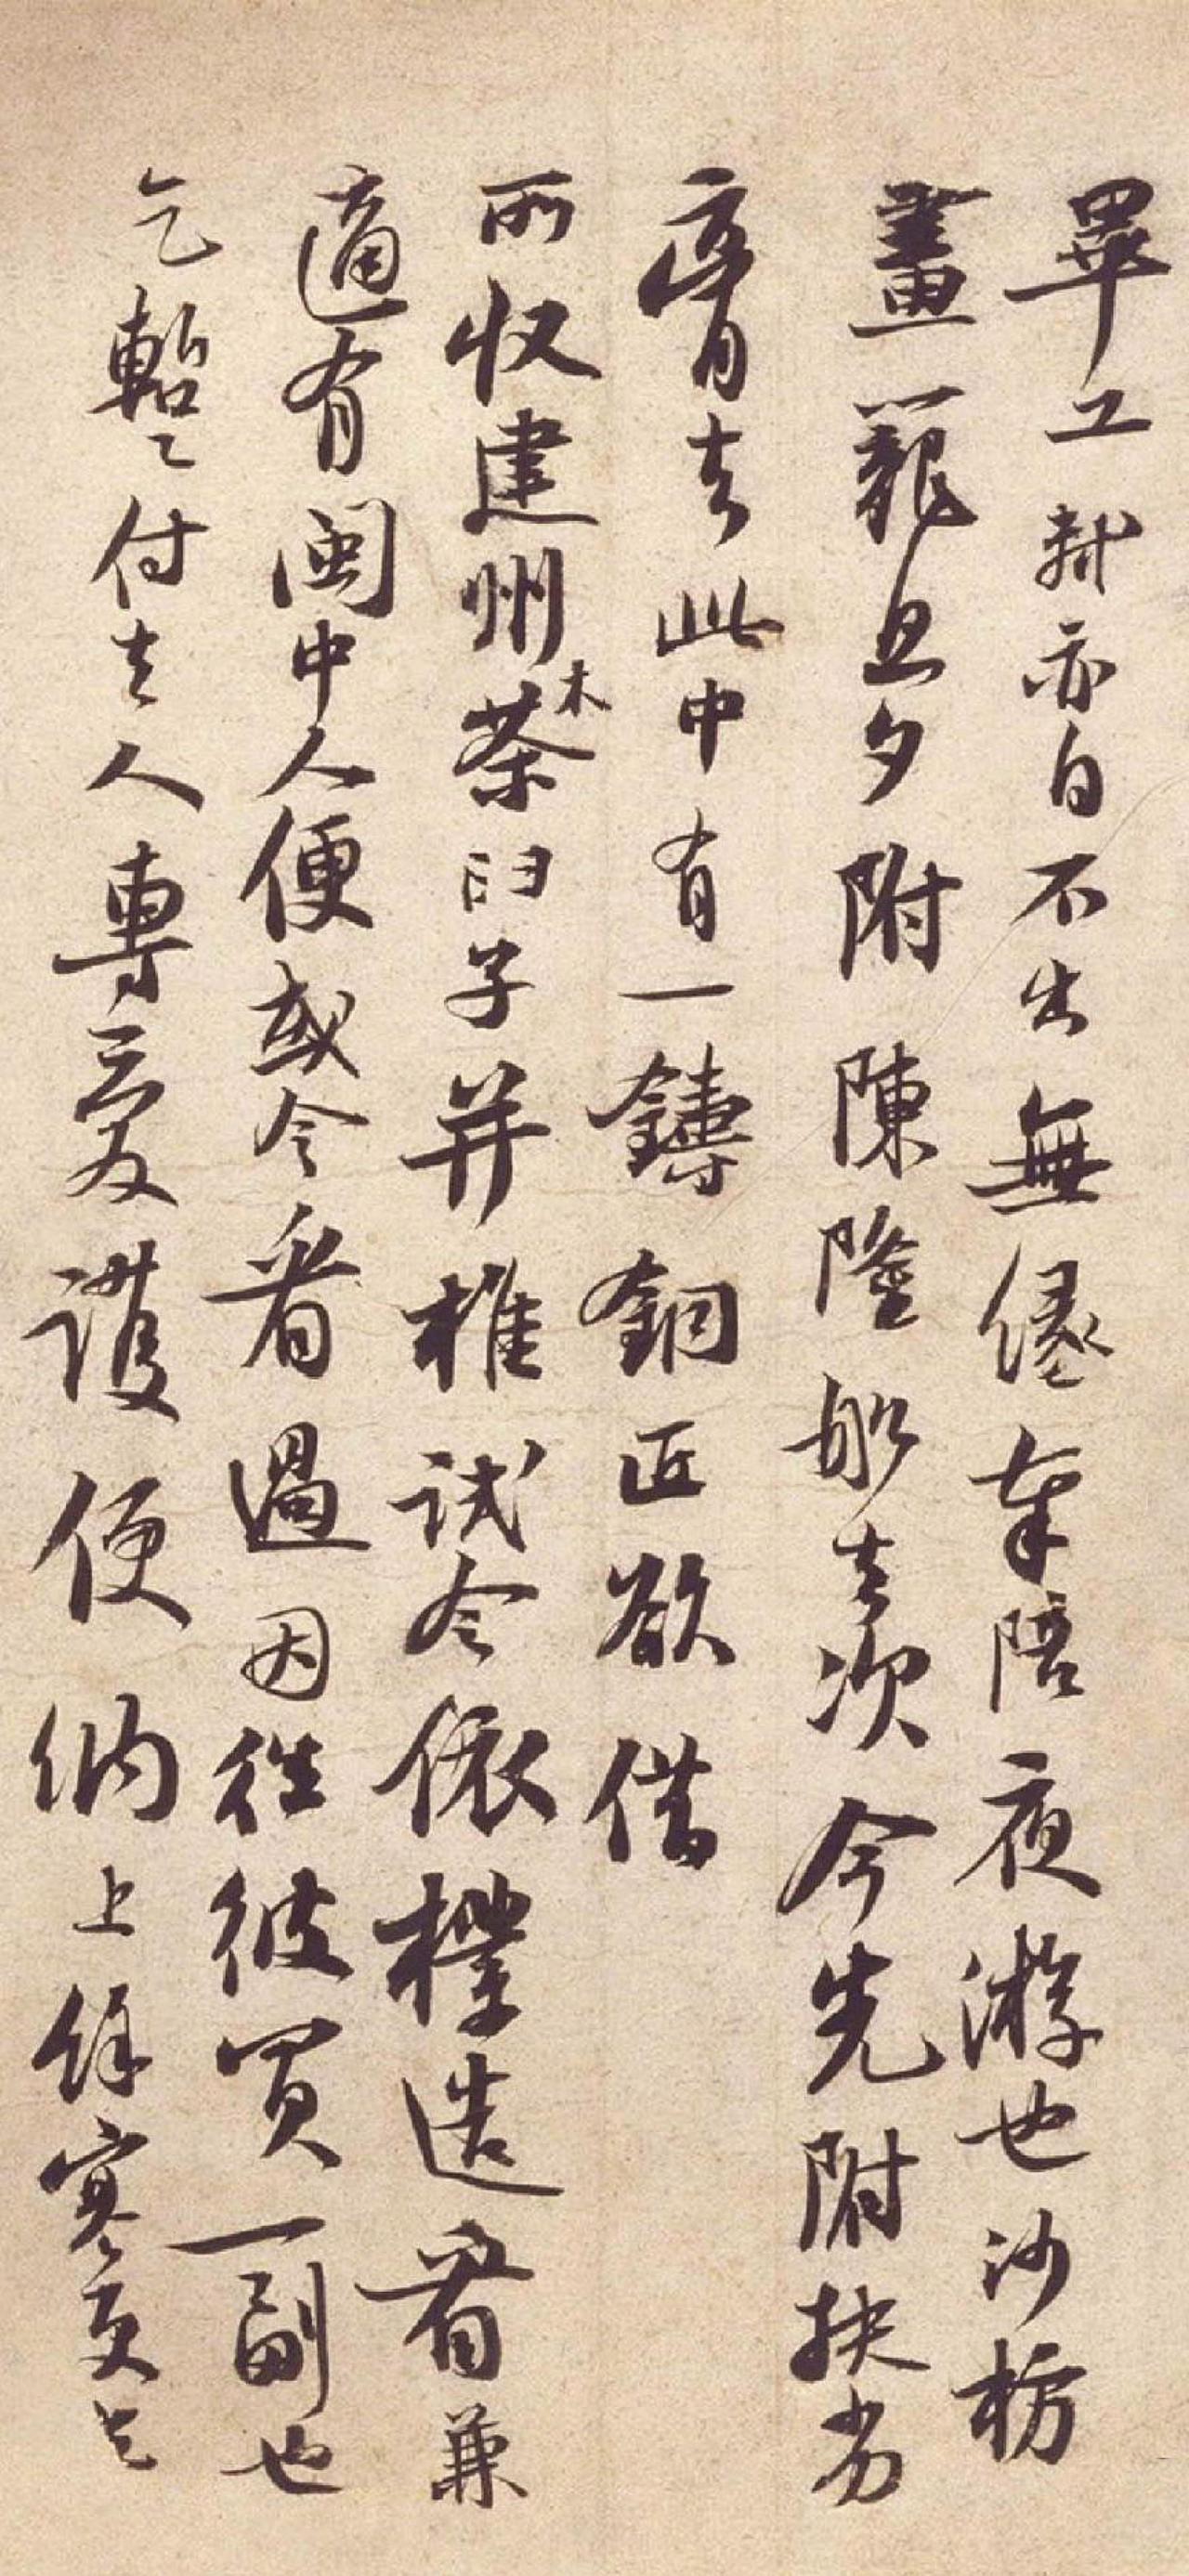 畢工軾亦自不出無緣奉陪夜游也沙枋
畫籠旦夕附陳隆船去次今先附扶劣
膏去此中有一鑄銅匠欲借
所收建州木茶臼子并椎試令依樣造看兼
適有閩中人便或令看過因往彼買一副也
乞暫付去人專愛護便納上餘寒更乞